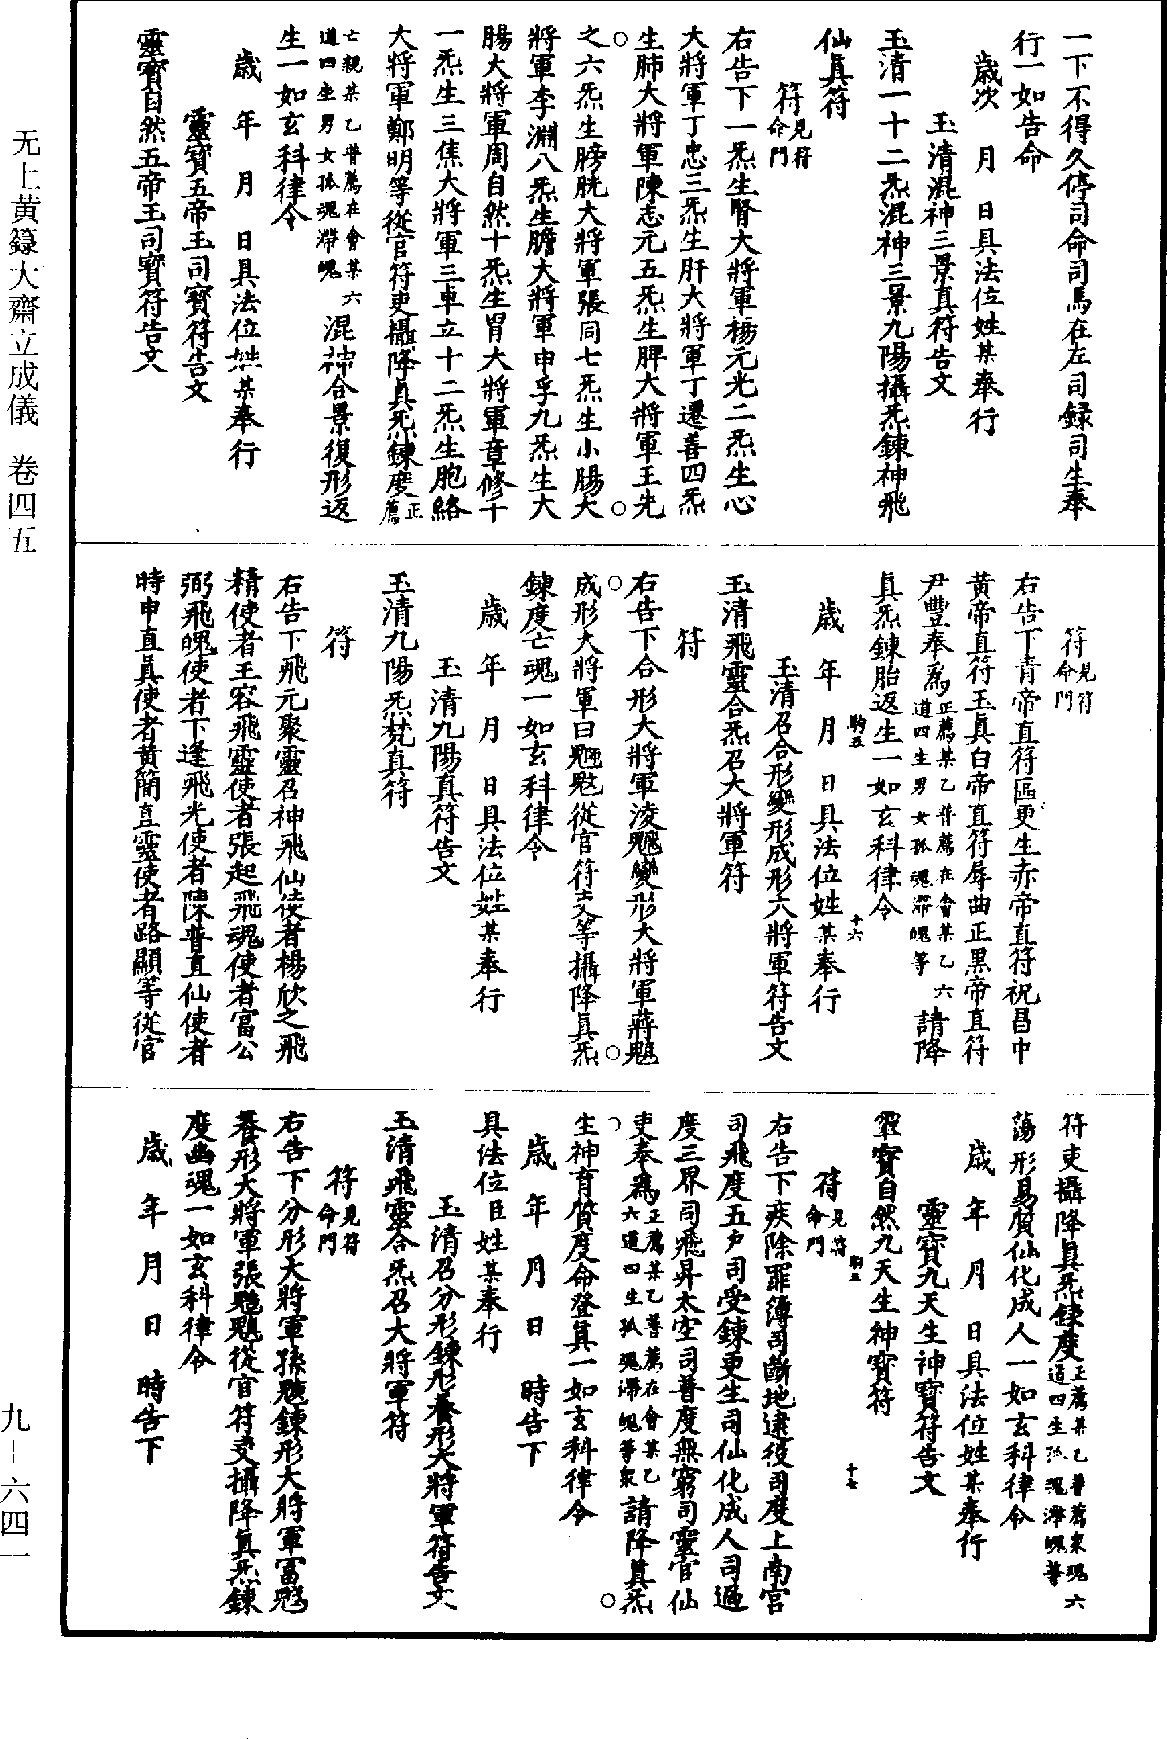 无上黄籙大齋立成儀 卷四五
九－六四一
一下不得久停司命司馬在左司録司生奉
行一如告命
歲次 月 日具法位姓某奉行
玉清混神三景真符告文
玉清一十二炁混神三景九陽攝炁鍊神飛
仙真符
符見符命門
右告下一炁生腎大將軍楊元光二炁生心
大將軍丁忠三炁生肝大將軍丁遷善四炁
生肺大將軍陳志元五炁生脾大將軍王先
之六炁生膀胱大將軍張同七炁生小腸大
將軍李淵八炁生膽大將軍申孚九炁生大
腸大將軍周自然十炁生胃大將軍章修十
一炁生三焦大將軍三車立十二炁生胞絡
大將軍鄭明等從官符吏攝降真炁鍊度正薦
亡親某乙普薦在會某六道四生男女孤魂滯魄混神合景復形返
生一如玄科律令
歲 年 月 日具法位姓某奉行
靈寶五帝玉司寶符告文
靈寶自然五帝玉司寶符告文
符見符命門
右告下青帝直符區更生赤帝直符祝昌中
黃帝直符王真白帝直符辱曲正黑帝直符
尹豐奉爲正薦某乙普薦在會某乙六道四生男女孤魂滯魄等請降
真炁鍊胎返生一如玄科律令
駒五 十六
歲 年 月 日具法位姓某奉行
玉清召合形變形成形大將軍符告文
玉清飛靈合炁召大將軍符
符
右告下合形大將軍淩䰢變形大將軍蔣䰢
成形大將軍曰魓䰢從官符吏等攝降真炁
鍊度亡魂一如玄科律令
歲 年 月 日具法位姓某奉行
玉清九陽真符告文
玉清九陽炁梵真符
符
右告下飛元聚靈召神飛仙使者楊欣之飛
精使者王容飛靈使者張起飛魂使者富公
弼飛魄使者下逢飛光使者陳普直仙使者
時申直真使者黃簡直靈使者路顯等從官
符吏攝降真炁鍊度正薦某乙普薦衆魂六道四生孤魂滯魄等
蕩形易質仙化成人一如玄科律令
歲 年 月 日具法位姓某奉行
靈寶九天生神寶符告文
靈寶自然九天生神寶符
駒五 十七
符見符命門
右告下疾除罪簿司斷地逮役司度上南宮
司飛度五户司受鍊更生司仙化成人司過
度三界司飛昇太空司普度無窮司靈官仙
吏奉爲正薦某乙普薦在會某乙六道四生孤魂滯魄等衆請降真炁
生神育質度命登真一如玄科律令
歲 年 月 日 時告下
具法位臣姓某奉行
玉清召分形鍊形養形大將軍符告文
玉清飛靈合炁召大將軍符
符見符命門
右告下分形大將軍孫䰢鍊形大將軍富䰢
養形大將軍張䰢䰢從官符吏攝降真炁鍊
度幽魂一如玄科律令
歲 年 月 日 時告下